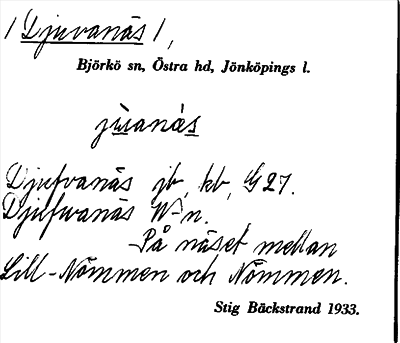 / Djuvanäs /,
Björkö sn, Östra hd, Jönköpings l.
juanäs
Djufvanäs jb, kb, G27.
Djilfwanäs W-n.
På näset mellan
Lill-Nömmen och Nömmen.
Stig Bäckstrand 1933.